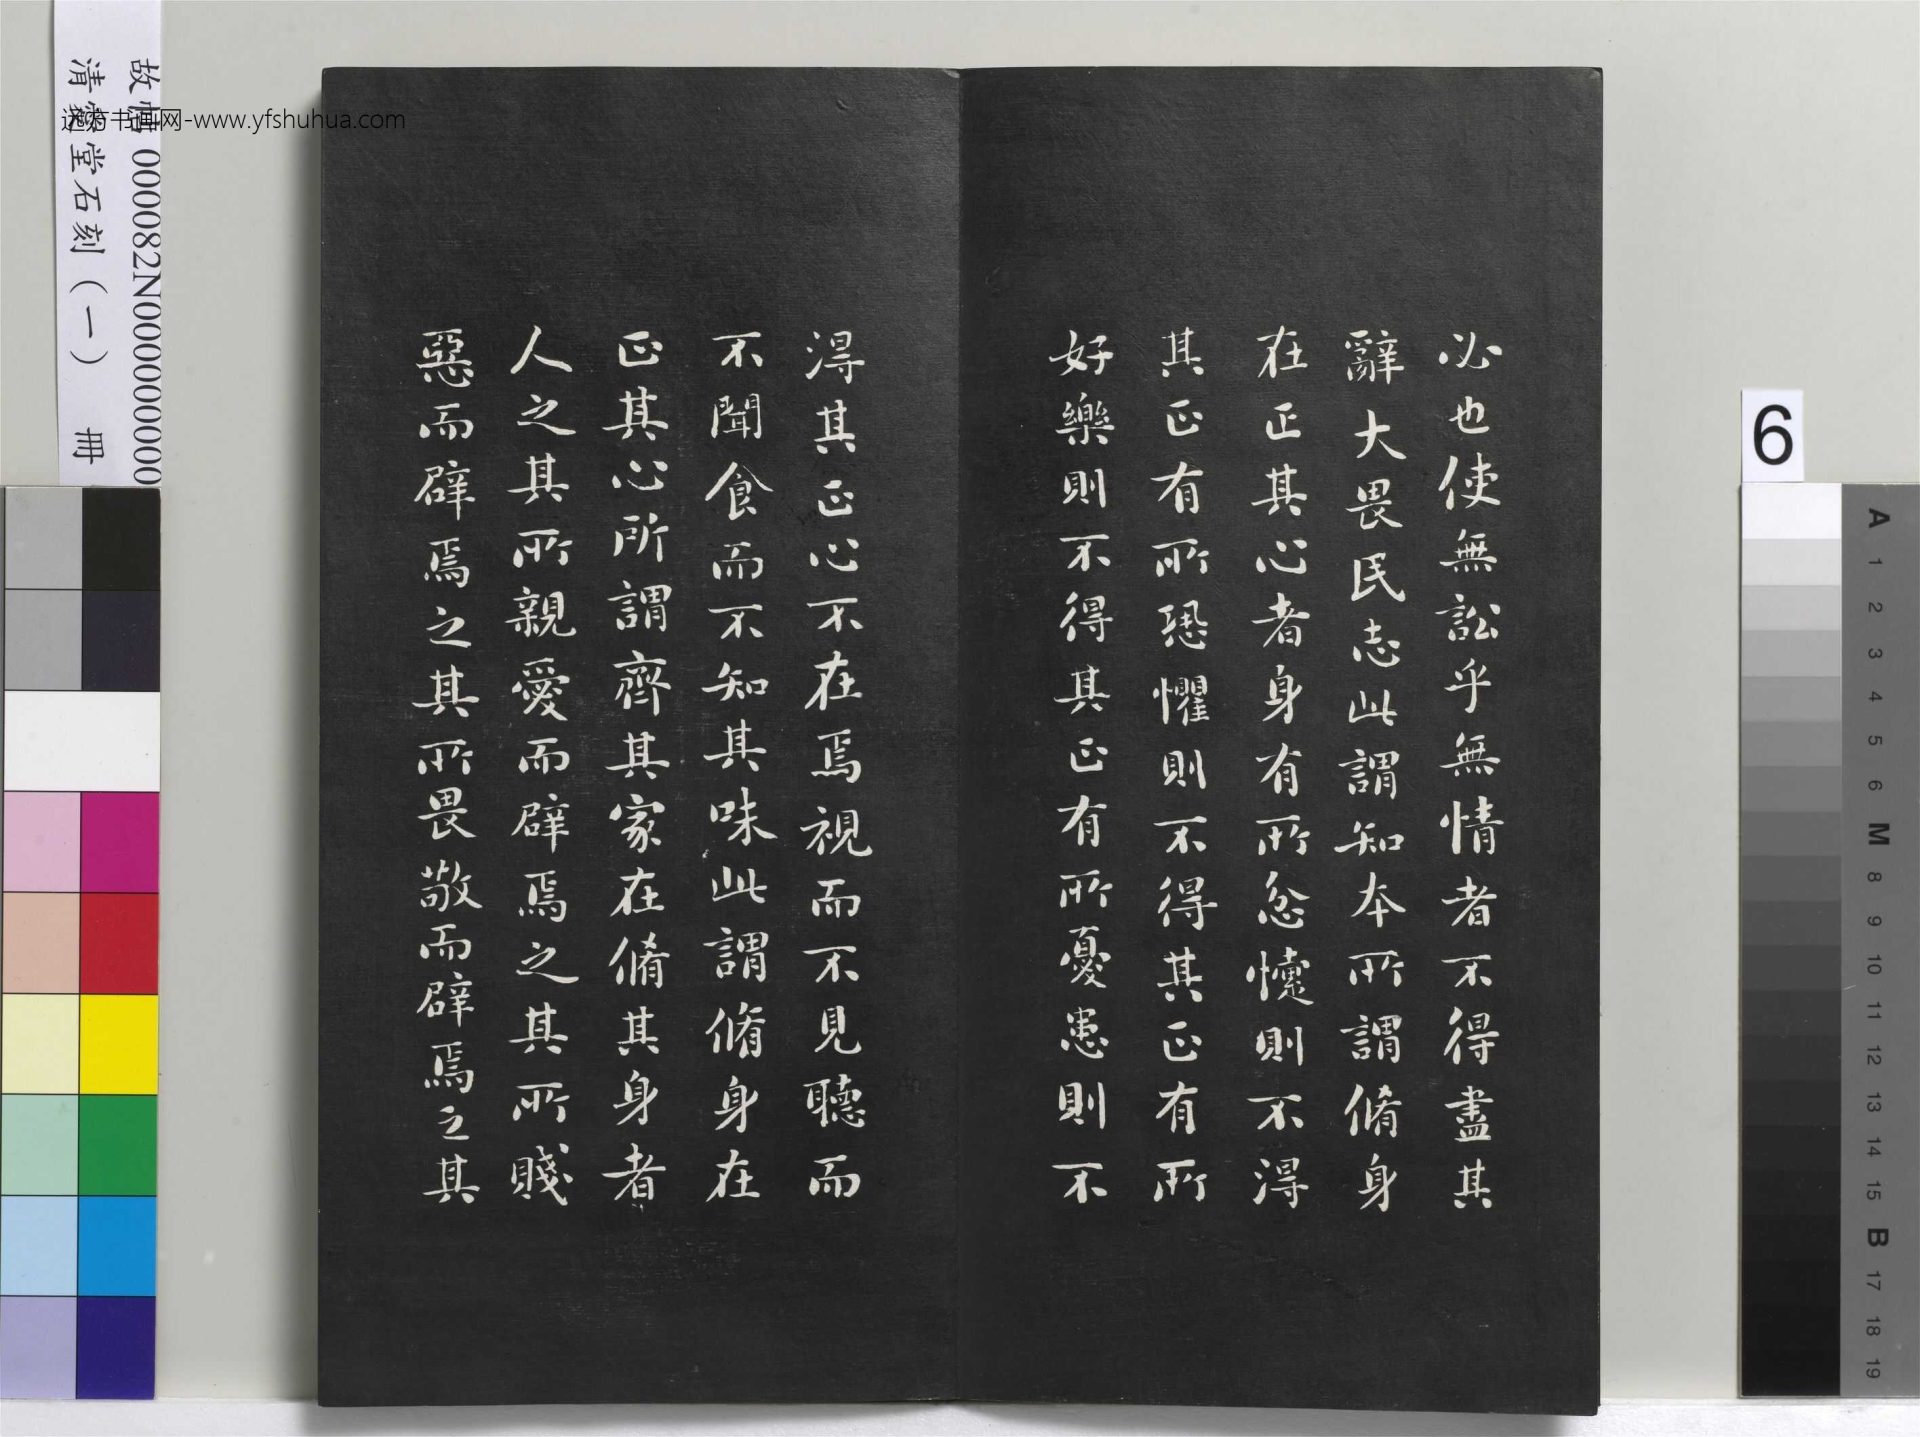 必也使無訟乎無情者不得盡其
辭大畏民志此謂知本所謂脩身
在正其心者身有所忿懥則不得
其正有所恐懼則不得其正有所
好樂則不得其正有所憂患則不
得其正心不在焉視而不見聽而
不聞食而不知其味此謂脩身在
正其心所謂齊其家在脩其身者
人之其所親愛而辟焉之其所賤
惡而辟焉之其所畏敬而辟焉之其
故帖 000082N000000000
清 堂石刻(一) 冊
远方书画网-www.yfshuhua.com
6
A
1
2
3
4
5
6
M
8
9
10
11
12
13
14
15
B
17
18
19